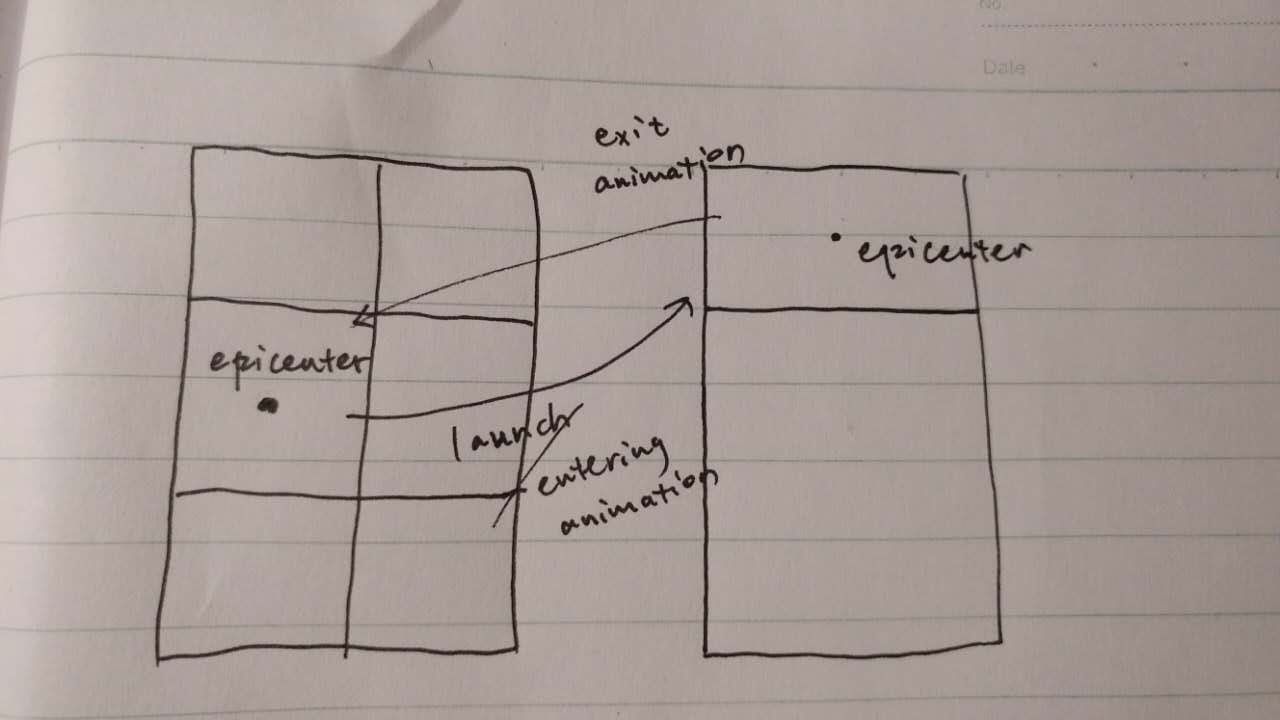 No.
Date
exit
animation
epicenter
epicenter
launch
entering
animation